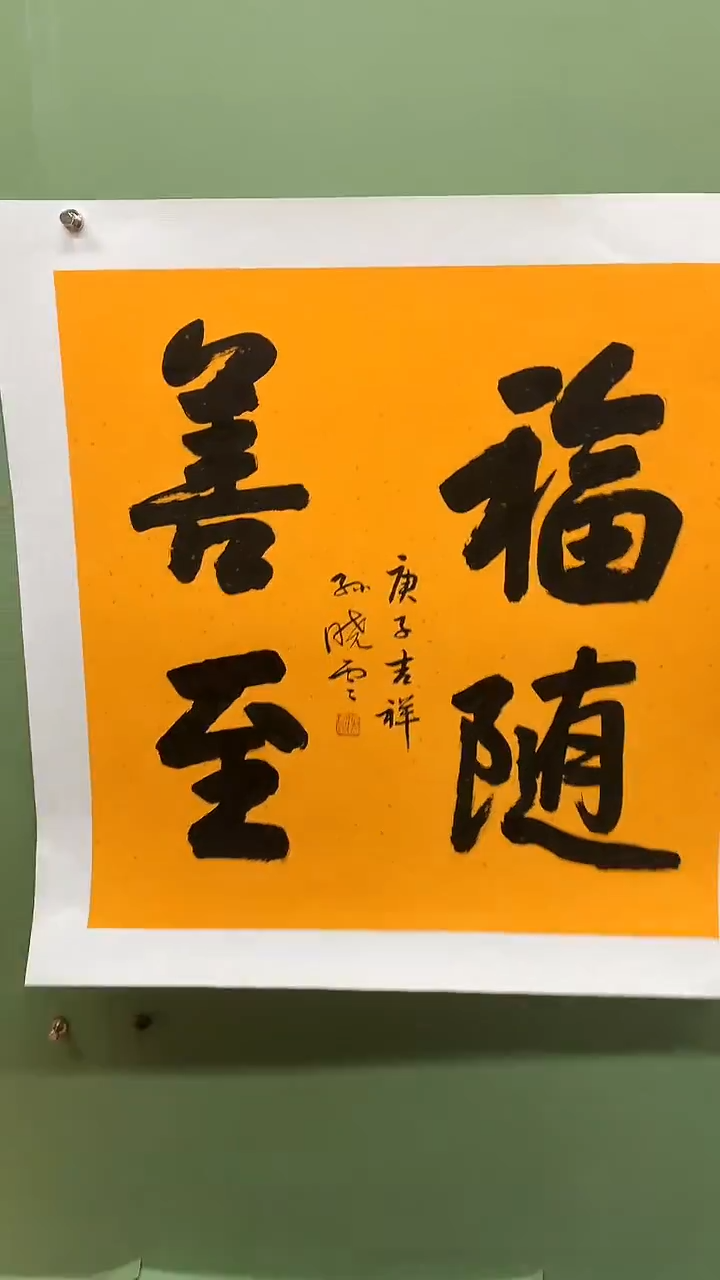 福随
善至
庚子吉祥
孙晓云